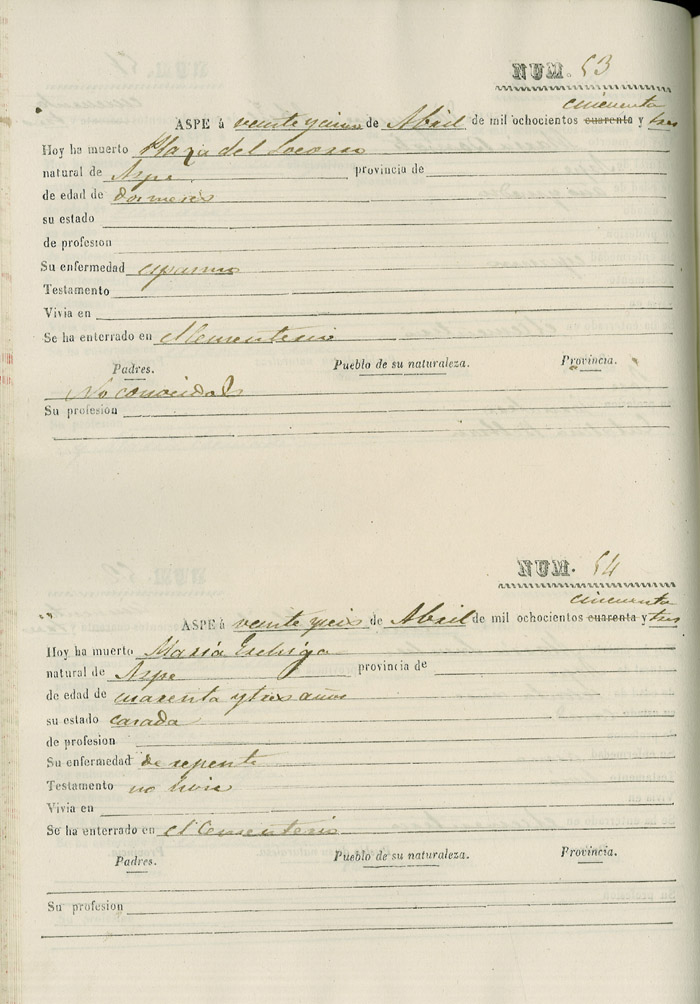 NUM. 53
cincuenta
ASPE á veinte y cinco de Abril de mil ochocientos cuarenta y tres
Hoy ha muerto Plaza del Socorro
natural de Aspe provincia de
de edad de dos meses
su estado
de profesion
Su enfermedad espasmo
Testamento
Vivia en
Se ha enterrado en el Cementerio
Padres. Pueblo de su naturaleza. Provincia.
No conocidos
Su profesion
NUM. 54
cincuenta
ASPE á veinte y seis de Abril de mil ochocientos cuarenta y tres
Hoy ha muerto Maria
natural de Aspe provincia de
de edad de cuarenta y tres años
su estado casada
de profesion
Su enfermedad de repente
Testamento no hizo
Vivia en
Se ha enterrado en el Cementerio
Padres. Pueblo de su naturaleza. Provincia.
Su profesion